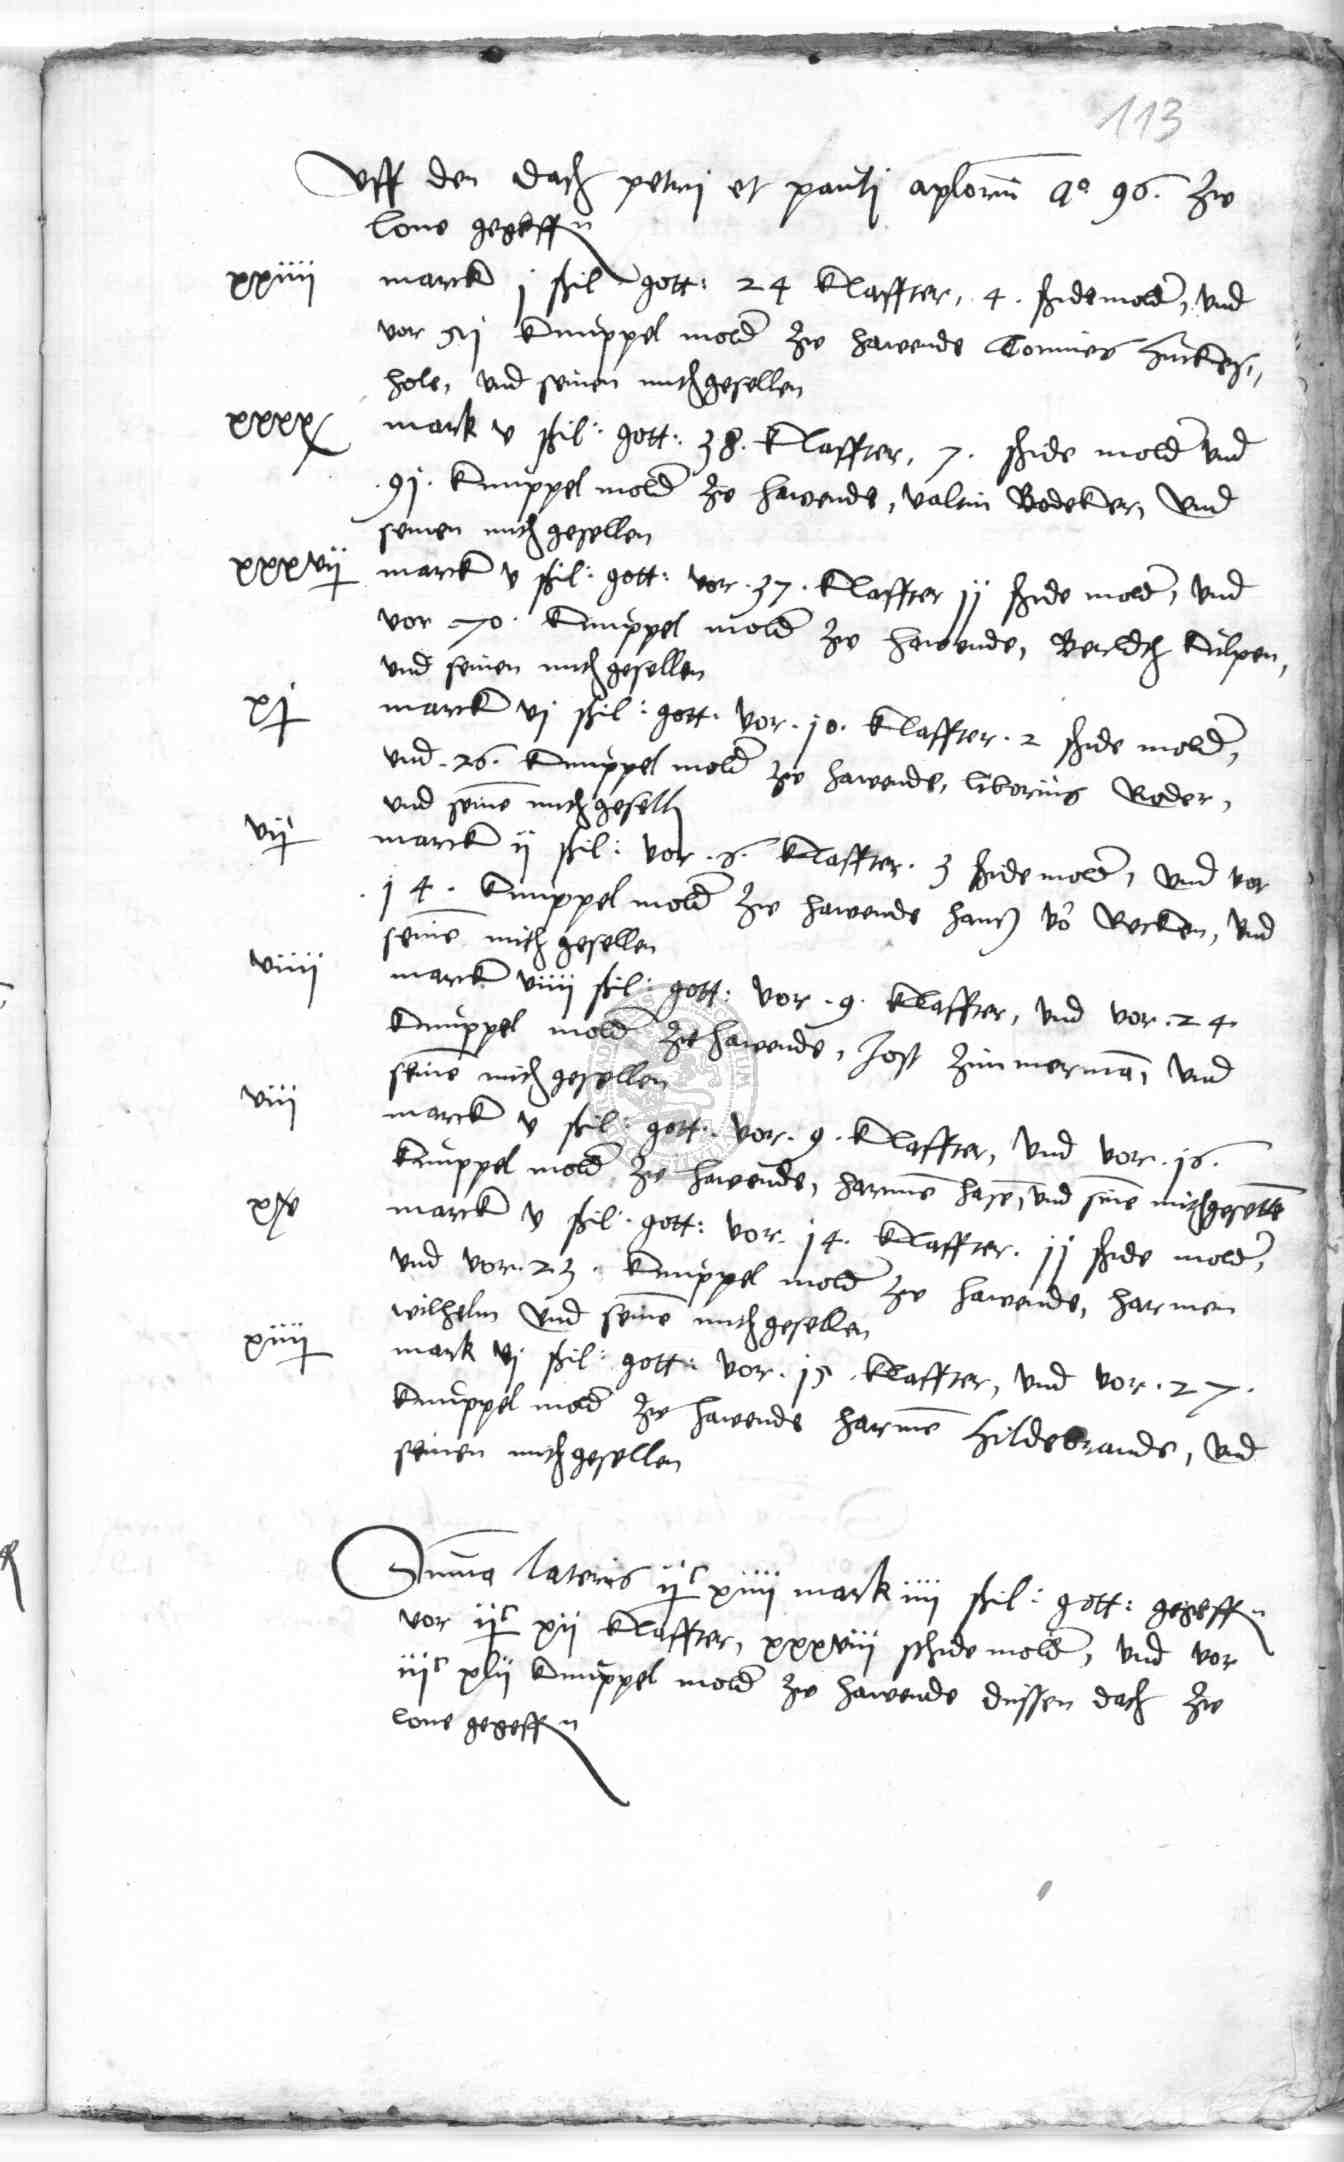 113
Uff den dach petri et pauli aplorum ao 96. zw
lone gegeffn
xxiiii marck j ßil gott: 24 klaffter, 4. schide molder, und
vor 51 knuppel molder zw hawende Tonnies
hole, und seinen mithgesellen
xxxx mark v ßil: gott: 38. klaffter, 7. schide molder und
.91. knuppel molder zw hawende, valtin Bodeker, und
seinen mithgesellen
xxxvii marck v ßil: gott: vor .37. klaffter jj schide molder, und
vor 70. knuppel molder zw hawende, Berldth kulpen,
und seinen mithgesellen
xj marck vj ßil: gott. vor .10. klaffter. 2 schide molder,
und .26. knuppel molder zw hawende, liborius Roder,
und seine mithgeselln
vii marck ii ßil: vor .6. klaffter. 3 schide molder, und vor
.14. knuppel molder zw hawende hans vo Recken, und
seine mithgesellen
viiii marck viiii ßil: gott: vor .9. klaffter, und vor .24
knuppel molder zw hawende, Jost zimmerman, und
seine mithgesellen
viii marck v ßil: gott: vor .9. klaffter, und vor .16.
knuppel molder zw hawende, harme hase, und sine mithgeselle
xv marck v ßil. gott: vor. 14. klaffter. jj schide molder,
und vor .23. knuppel molder zw hawende, harmen
wilhelm und seine mithgesellen
xiiii mark vj ßil: gott: vor .15. klaffter, und vor .27.
knuppel molder zw hawende harme hildebrande, und
seinen mithgesellen
Suma lateris iic xiiii mark iiii ßil: gott: gegeffn
vor iic xii klaffter, xxxviii schide molder, und vor
iiic xlii knuppel molder zw hawende dussen dach zw
lone gegeffn